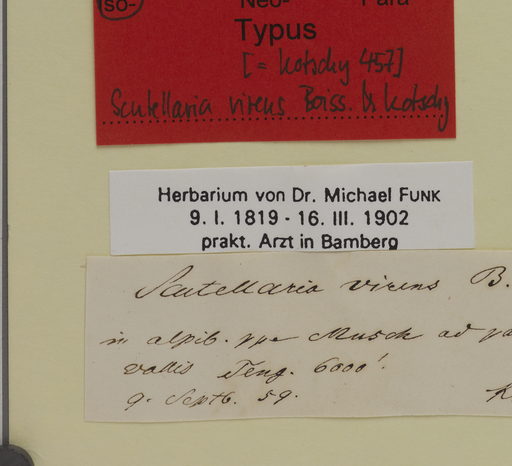 so-
Neo- Para
Typus
[= Kotschy 457]
Scutellaria virens Boiss. & Kotschy
Herbarium von Dr. Michael FUNK
9. I. 1819 - 16. III. 1902
prakt. Arzt in Bamberg
Scutellaria virens B.
in alpib. ppe Musch ad pa
vallis Teng. 6000'.
9. Septb. 59.
K